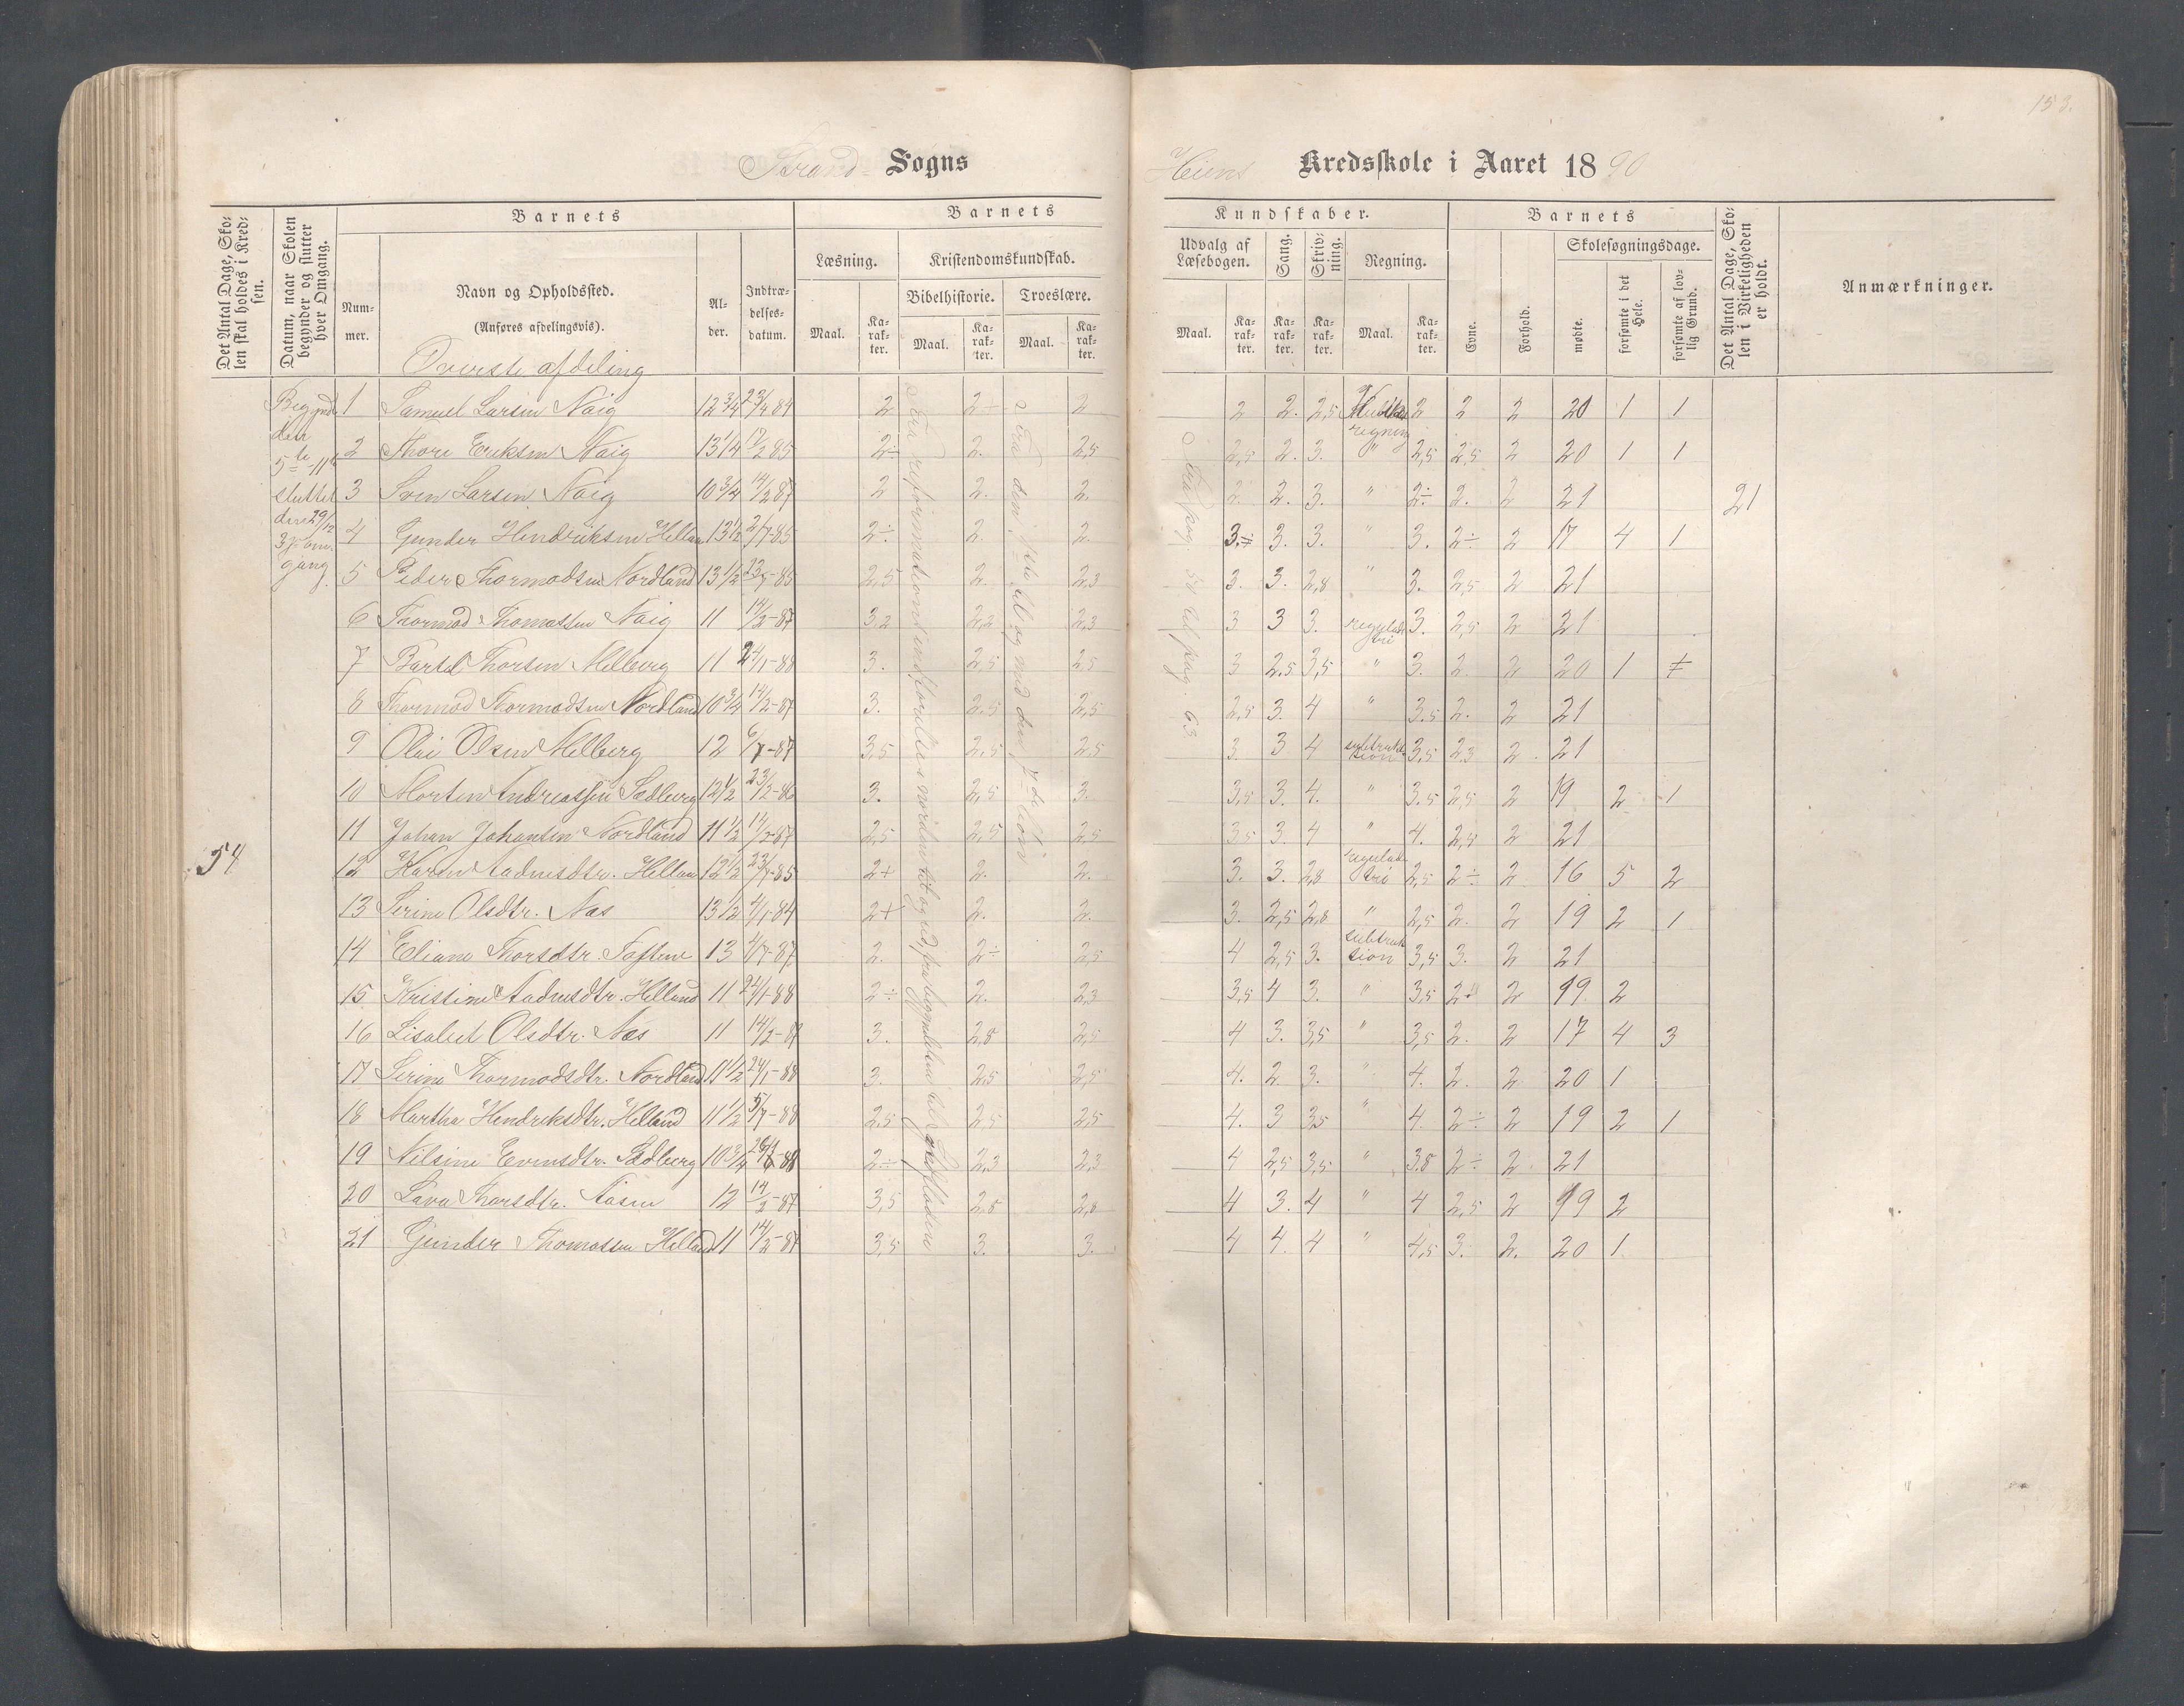 153.
Strand Sogns
Heiens Kredsskole i Aaret 1890
Det Antal Dage, Skolen skal holdes i Kredsen.
Datum, naar Skolen begynder og slutter hver Omgang.
Barnets
Nummer.
Navn og Opholdssted.
(Anføres afdelingsvis).
Alder.
Indtrædelsesdatum.
Barnets
Læsning.
Kristendomskundskab.
Bibelhistorie.
Troeslære.
Maal.
Karakter.
Maal.
Karakter.
Maal.
Karakter.
Kundskaber.
Udvalg af Læsebogen.
Sang.
Skrivning.
Regning.
Maal.
Karakter.
Karakter.
Karakter.
Maal.
Karakter.
Barnets
Evne.
Forhold.
Skolesøgningsdage.
mødte.
forsømte i det Hele.
forsømte af lovlig Grund.
Det Antal Dage, Skolen i Virkeligheden er holdt.
Anmærkninger.
Øverste afdeling
Begyndt
den
5te 11
sluttet
den 29/12
3die om-
gang.
54
21
1 Samuel Larsen Naig 12 3/4 23/4 84 2 2÷ 2 2 2. 2,5 2 2 2 20 1 1
2 Thore Eriksen Naig 13 1/4 17/2 85 2÷ 2. 2,5 2,5 2. 3. " 2,5 2,5 2 20 1 1
3 Sven Larsen Naig 10 3/4 14/2 87 2 2. 2. 2. 2. 3. " 2÷ 2. 2 21
4 Gunder Hendriksen Hellan 13 1/2 2/7-85 2÷ 2. 2. 3.÷ 3. 3. " 3. 2÷ 2 17 4 1
5 Peder Thormodsen Nordland 13 1/2 23/7-85 2,5 2. 2,3 3. 3. 2,8 " 3. 2,5 2 21
6 Thormod Thomassen Naig 11 14/2-87 3,2 2,2 2,3 3 3 3. regulade tri 3. 2,5 2 21
7 Bertel Thorsen Melberg 11 24/1-88 3. 2,5 2,5 3 2,5 3,5 " 3. 2. 2 20 1
8 Thormod Thormodsen Nordland 10 3/4 14/2-87 3. 2,5 2,5 2,5 3. 4 " 3.5 2. 2 21
9 Olai Olsen Melberg 12 6/7-87 3,5 2,5 2,5 3. 3 4 subtraktsion 3,5 2,3 2. 21
10 Morten Andreassen Sedberg 12 1/2 23/2-86 3. 2,5 3. 3,5 3. 4. " 3.5 2,5 2 19 2 1
11 Johan Johansen Nordland 11 1/2 14/2-87 2,5 2,5 2,5 3,5 3. 4 " 4. 2,5 2 21
12 Karen Aadnesdtr. Hellan 12 1/2 23/7-85 2+ 2. 2. 3. 3. 2,8 regulade tri 2,5 2÷ 2 16 5 2
13 Serine Olsdtr. Nas 13 1/2 4/1-84 2+ 2. 2. 3. 2,5 2,8 " 2,5 2. 2 19 2 1
14 Eliane Thorsdtr. Toftene 13 4/7-87 2. 2÷ 2,5 4 2,5 3. subtraktsion 3,5 3. 2 21
15 Kristine Aadnesdtr. Helland 11 24/1-88 2÷ 2. 2,3 3,5 4 3. " 3,5 2 2 19 2
16 Lisabet Olsdtr. Nas 11 14/2-87 3. 2,8 2,5 4 3. 3,5 " 3,5 2. 2 17 4 3
17 Serine Thormodsdtr. Nordland 11 1/2 24/1-88 3. 2,5 2,5 4. 2 3. " 4. 2. 2 20 1
18 Martha Hendriksdtr. Helland 11 1/2 5/7-88 2,5 2,5 2,5 4. 3 3,5 " 4. 2÷ 2 19 2 1
19 Nilsine Evensdtr. Sedberg 10 3/4 2÷ 2,3 2,3 4 2,5 3,5 " 3.8 2÷ 2 21
20 Lava Thorsdtr. Aasen 12 14/2-87 3,5 2,8 2,8 4 3. 4 " 4 2,5 2 19 2
21 Gunder Thomassen Helland 11 14/2-87 3,5 3. 3. 4 4. 4 " 4,5 3. 2. 20 1.